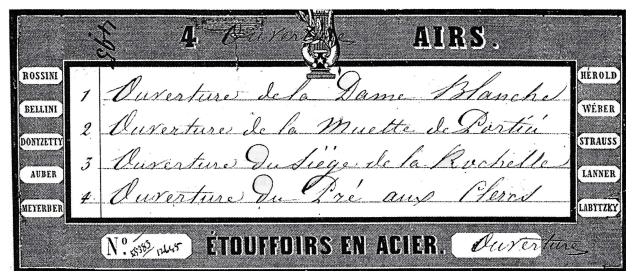 4 Ouverture AIRS.
ROSSINI
BELLINI
DONIZETTY
AUBER
MEYERBER
1 Ouverture de la Dame Blanche
2 Ouverture de la Muette de Portici
3 Ouverture du Siège de la Rochelle
4 Ouverture du Pré aux Clercs
HÉROLD
WÉBER
STRAUSS
LANNER
LABITZKY
N° ÉTOUFFOIRS EN ACIER. Ouverture